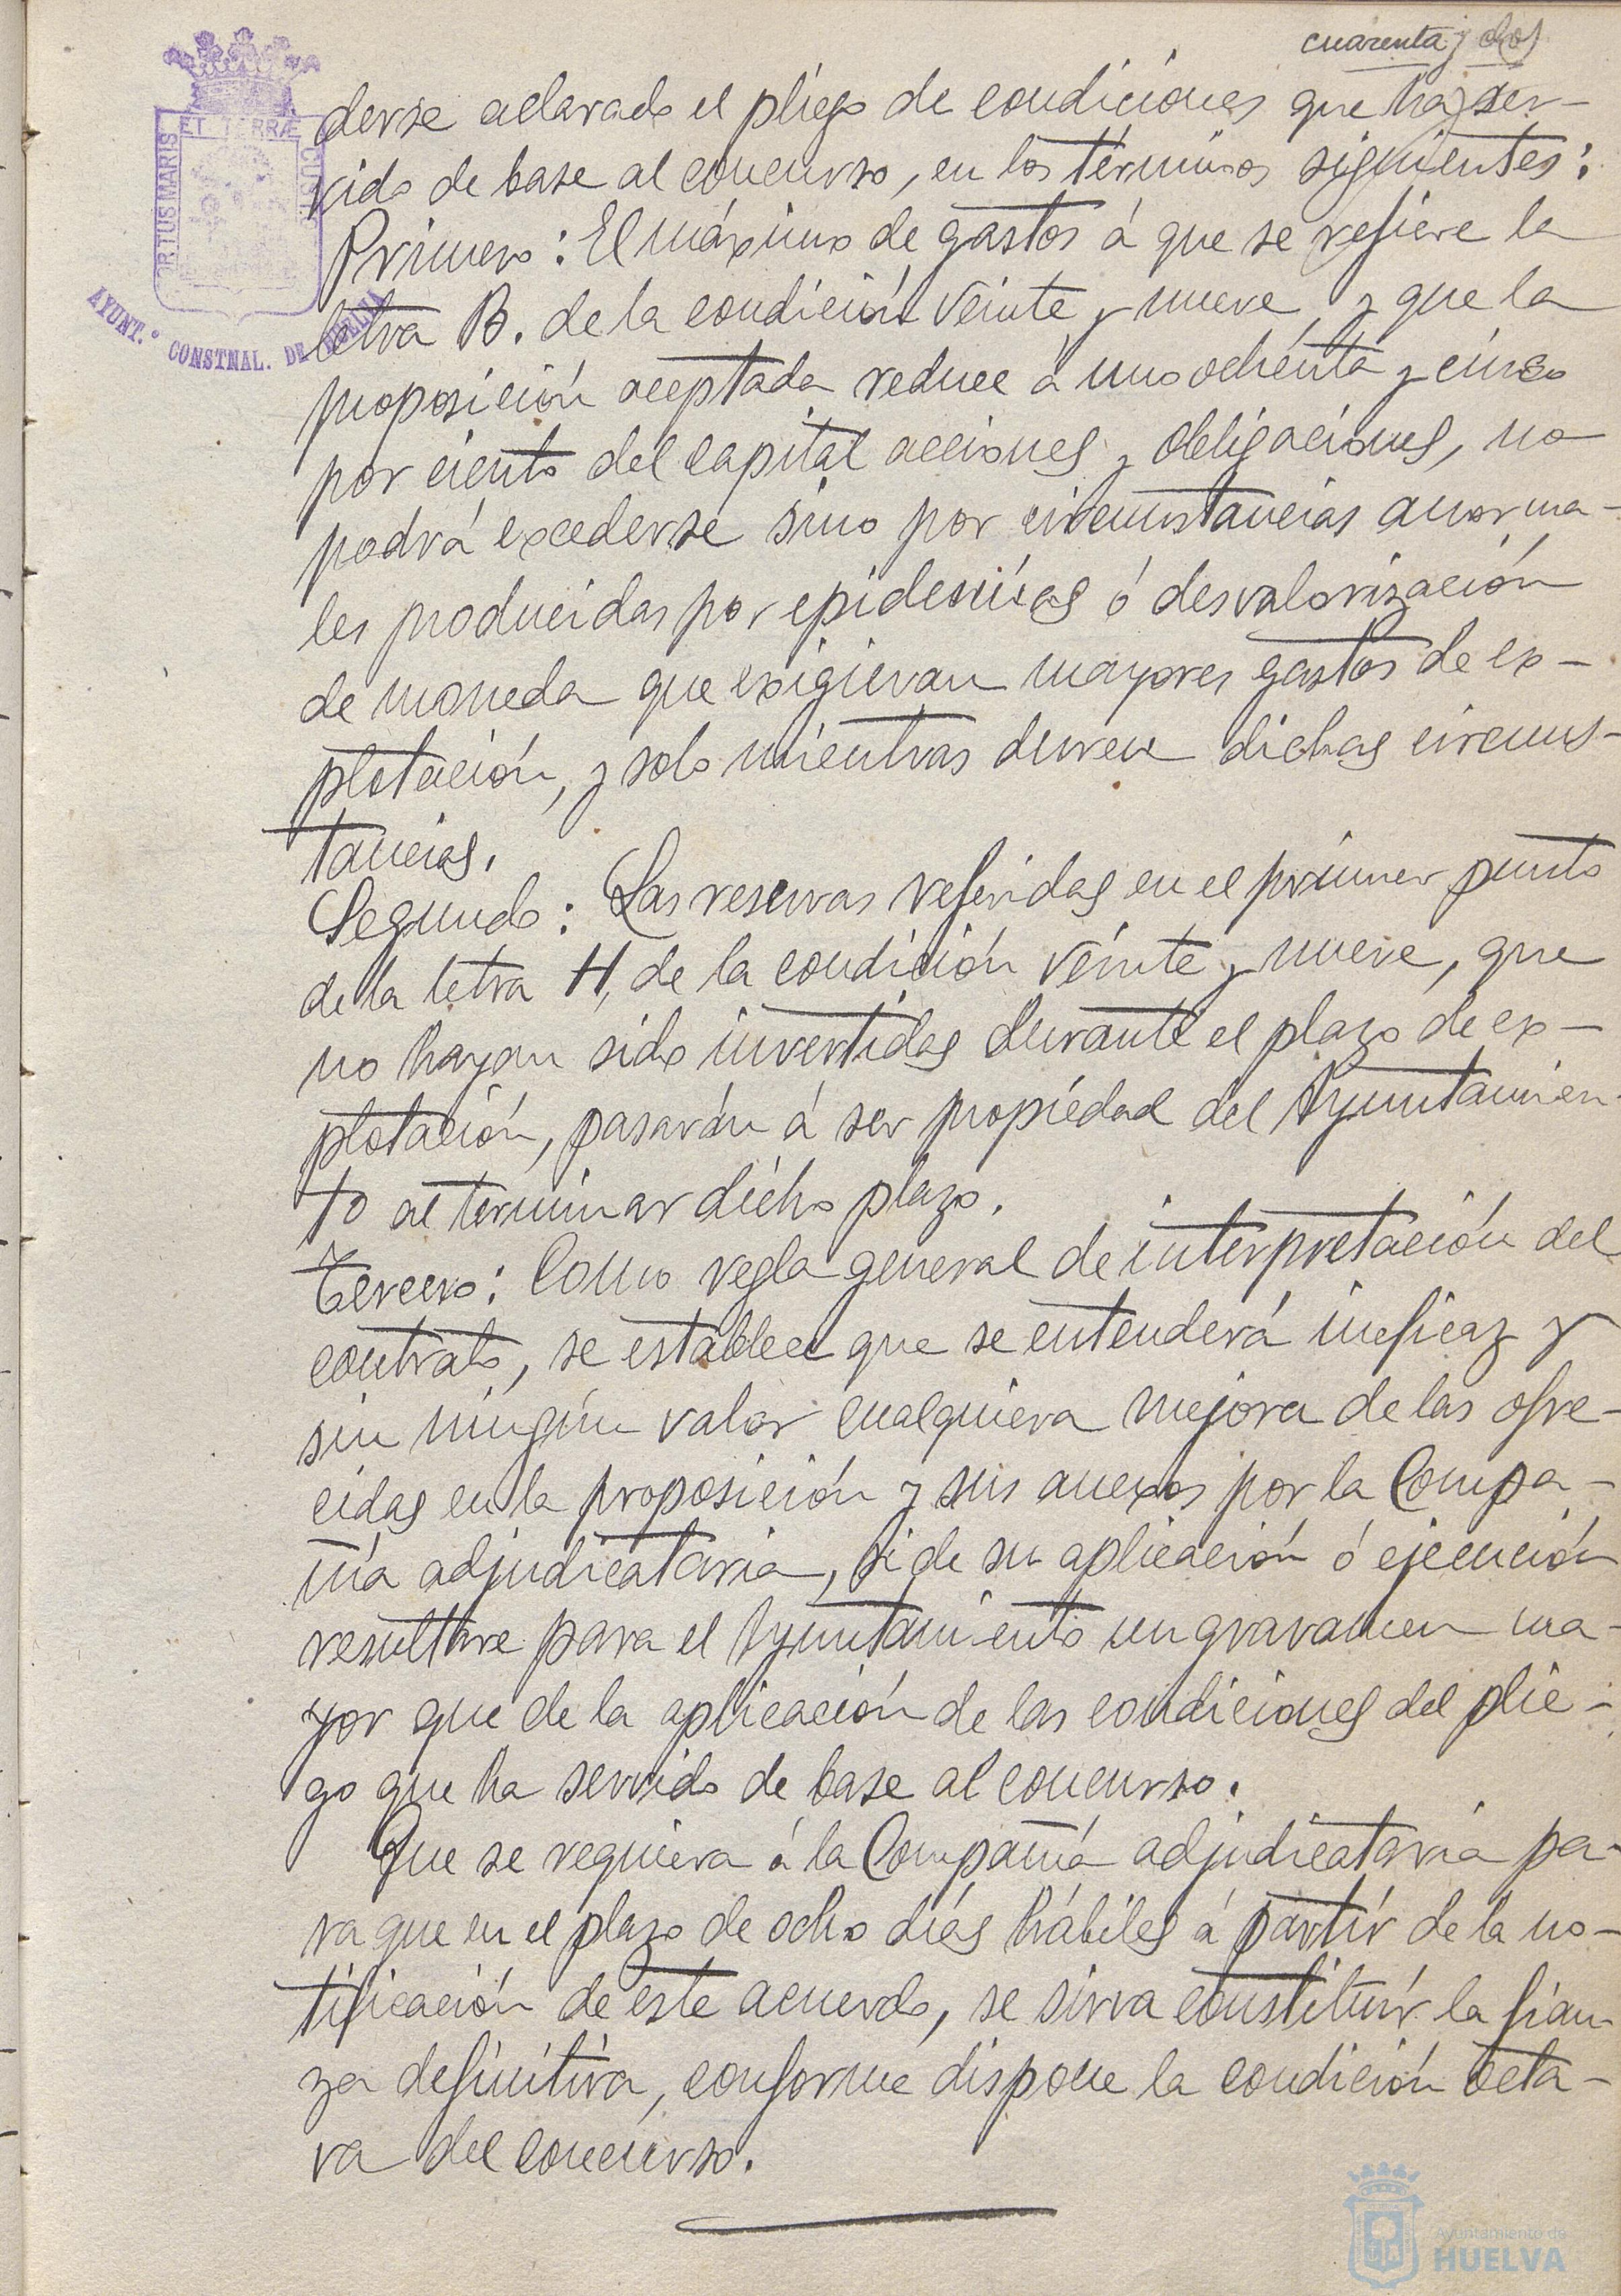 cuarenta y dos
derse aclarado el pliego de condiciones que ha ser-
vido de base al concurso, en los términos siguientes:
Primero: El máximo de gastos á que se refiere la
letra B. de la condición veinte y nueve, y que la
proposición aceptada reduce á un ochenta y cinco
por ciento del capital acciones y obligaciones, no
podrá excederse sino por circunstancias anorma-
les producidas por epidemias ó desvalorización
de moneda que exigieran mayores gastos de ex-
plotación, y solo mientras duren dichas circuns-
tancias.
Segundo: Las reservas referidas en el primer punto
de la letra H, de la condición veinte y nueve, que
no hayan sido invertidas durante el plazo de ex-
plotación, pasarán á ser propiedad del Ayuntamien-
to al terminar dicho plazo.
Tercero: Como regla general de interpretación del
contrato, se establece que se entenderá ineficaz y
sin ningún valor cualquiera mejora de las ofre-
cidas en la proposición y sus anexos por la Compa-
ñía adjudicataria, si de su aplicación ó ejecución
resultare para el Ayuntamiento un gravamen ma-
yor que de la aplicación de las condiciones del plie-
go que ha servido de base al concurso.
Que se requiera á la Compañía adjudicataria pa-
ra que en el plazo de ocho días hábiles á partir de la no-
tificación de este acuerdo, se sirva constituir la fian-
za definitiva, conforme dispone la condición octa-
va del concurso.
ORTUS MARIS
ET TERRÆ
CUST
AYUNT.º CONSTNAL. DE HUELVA
Ayuntamiento de
HUELVA